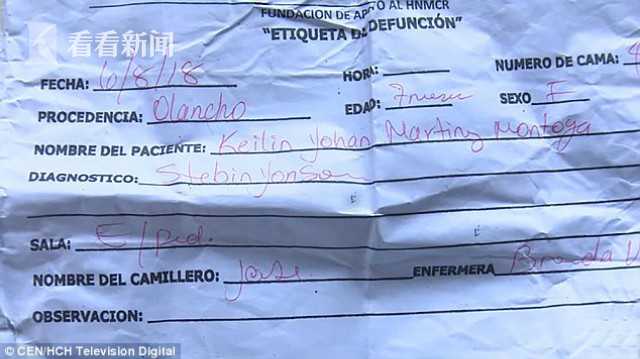 看看新闻
FUNDACION DE APOYO AL HNMCR
"ETIQUETA DE DEFUNCIÓN"
FECHA: 6/8/18 HORA: NUMERO DE CAMA:
PROCEDENCIA: Olancho EDAD: 7 SEXO F
NOMBRE DEL PACIENTE: Keilin Yohan Martinz Montoga
DIAGNOSTICO: Stebin Yonson
E
E
SALA: E/ped.
NOMBRE DEL CAMILLERO: Jose. ENFERMERA Brenda
OBSERVACION:
© CEN/HCH Television Digital